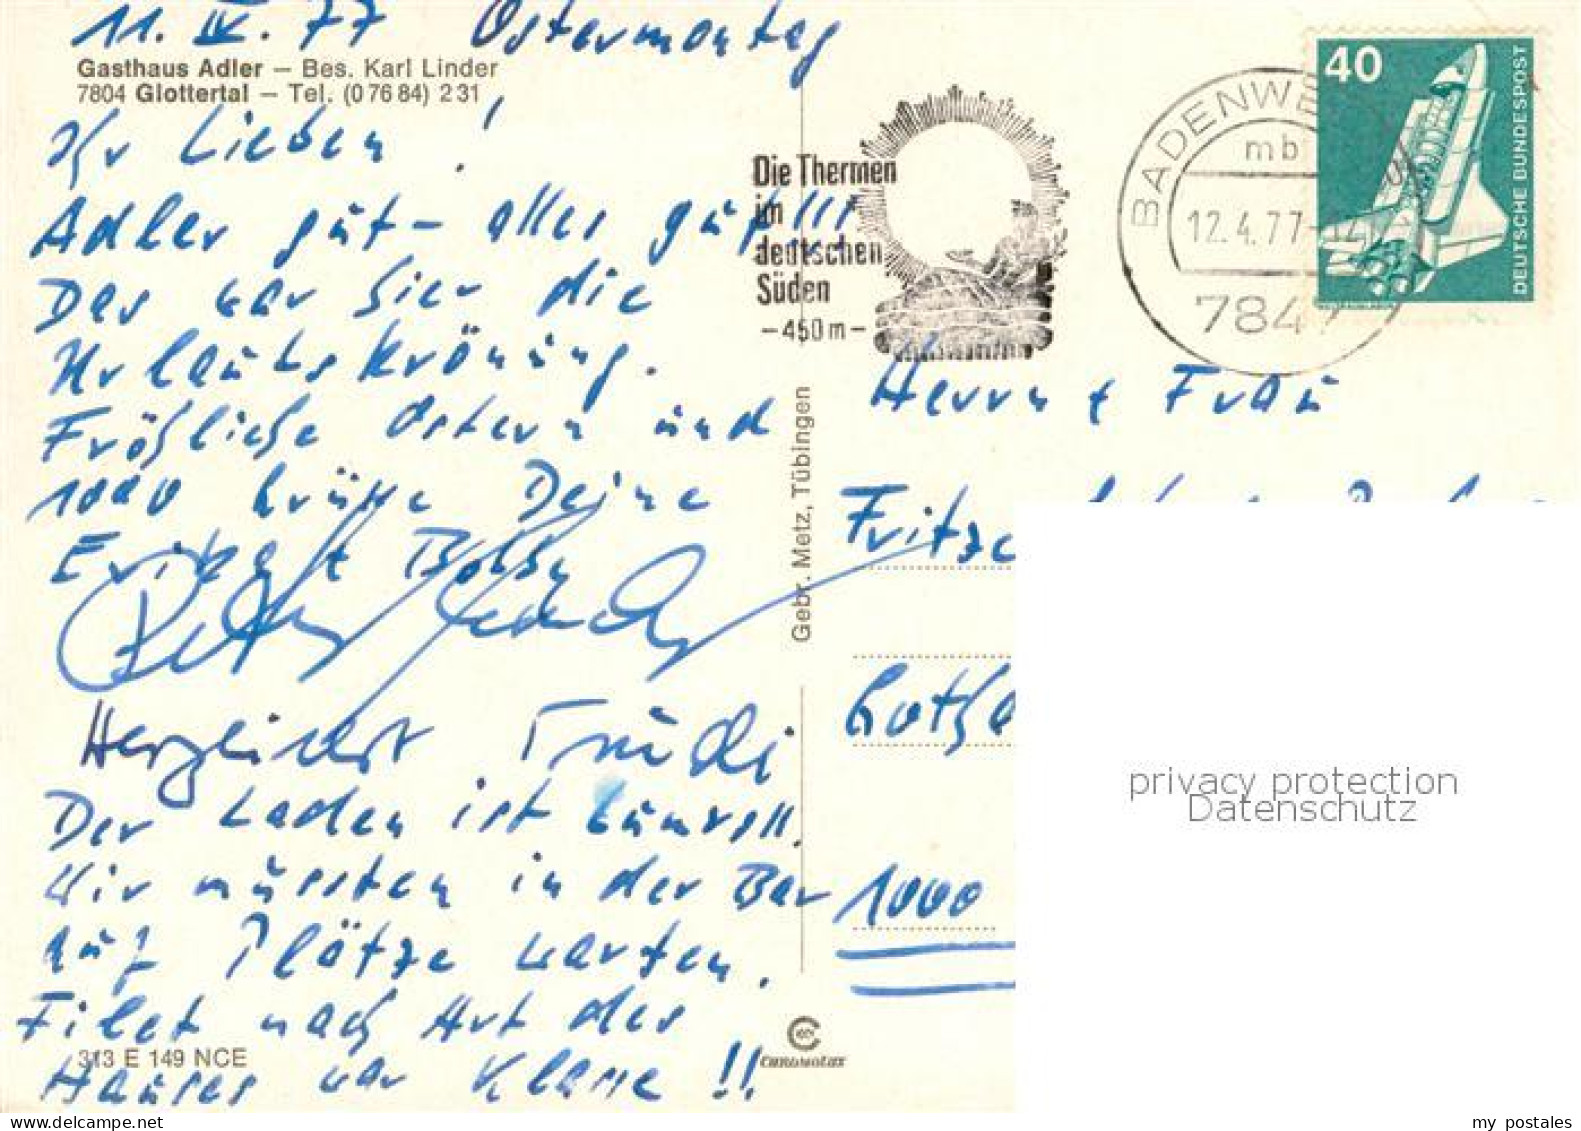 11. IV. 77 Ostermontag
Gasthaus Adler — Bes. Karl Linder
7804 Glottertal — Tel. (0 76 84) 2 31
Ihr Lieben!
Adler gut - alles gut!!!
Das war hier die
Urlaubskrönung.
Fröhliche Ostern und
1000 Grüße Deine
Erika + Bobby
Herzlichst Trudi
Der Laden ist bumsvoll.
Wir mussten in der Bar
auf Plätze warten.
Filet nach Art des
Hauses war Klasse!!
313 E 149 NCE
Gebr. Metz, Tübingen
CHROMOLUX
Die Thermen
im
deutschen
Süden
— 450 m —
BADENWE
mb
12.4.77
7847
40
DEUTSCHE BUNDESPOST
Herrn + Frau
Fritz
1000
privacy protection
Datenschutz
www.delcampe.net
my postales